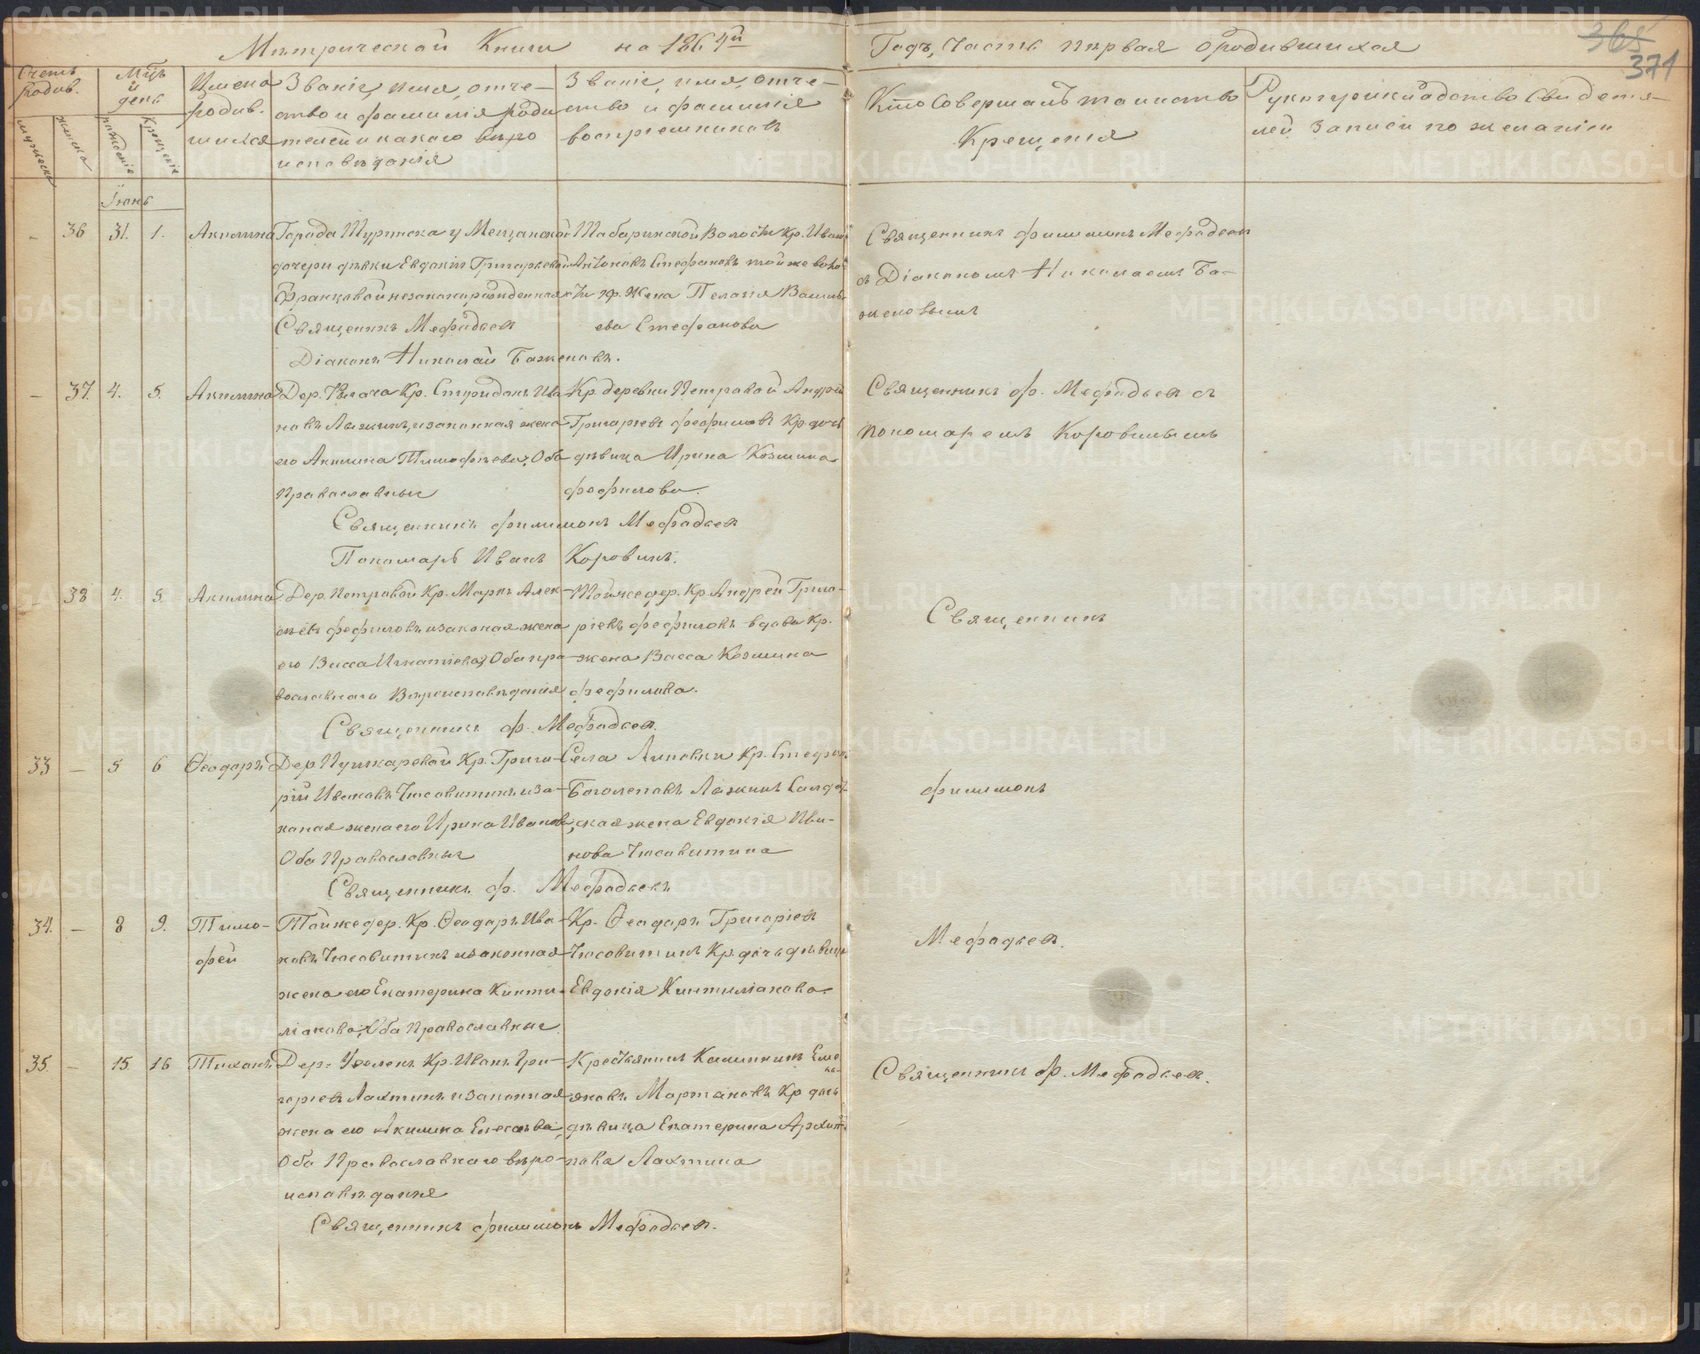 Метрической Книги на 1864й Годъ, Часть первая о родившихся
365
371
Счетъ родив.
мужеска
женска
Мцъ и день
рожденія
крещенія
Имена родив-
шихся
Званіе, имя, отче-
ство и фамилія роди
телей и какого веро
исповѣданія
Званіе, имя, отче-
ство и фамилія
воспріемниковъ
Кто совершалъ таинство
Крещенія
Рукоприкладство свидете-
лей записи по желанію
Іюнь
- 36 31. 1. Акилина
Города Туринска у Мещанской
дочери девки Евдокіи Григорьевой
незаконорожденная
Священникъ Мефодьевъ
Діаконъ Николай Баженовъ.
Табаринской Волости Кр. Иванъ
Антоновъ Стефановъ той же воло
сти кр. Жена Пелагія Василь
ева Стефанова
Священникъ Филимонъ Мефодьевъ
съ Діакономъ Николаемъ Ба-
женовымъ
- 37. 4. 5. Акилина
Дер. Кр. Спиридонъ Ива
новъ Лыжинъ, и законная жена
его Акилина Тимофеева, Оба
Православные
Священникъ Филимонъ Мефодьевъ
Пономарь Иванъ Коровинъ.
Кр. деревни Петровой Андрей
Григорьевъ Феофиловъ Кр. дочь
девица Ирина Козмина
Феофилова.
Священникъ Ф. Мефодьевъ съ
пономаремъ Коровинымъ
- 38 4. 5. Акилина
Дер. Петровой Кр. Маркъ Алек
сеевъ Феофиловъ и законая жена
его Васса Игнатіева, Оба пра-
вославнаго Вероисповѣданія
Священникъ Ф. Мефодьевъ.
Той же дер. Кр. Андрей Григо-
ріевъ Феофиловъ вдова Кр.
жена Васса Козмина
Феофилова.
Священникъ
33 - 5 6 Ѳеодоръ
Дер. Пушкаревой Кр. Григо-
рій Ивановъ Чусовитинъ и за-
коная жена его Ирина Иванова,
Оба Православные
Священникъ Ф. Мефодьевъ
Села Липовки Кр. Стефанъ
Боголеповъ Лыжинъ Солдат
ская жена Евдокія Ива-
нова Чусовитина
Филимонъ
34. - 8 9. Тимо-
фей
Той же дер. Кр. Ѳеодоръ Ива
новъ Чусовитинъ и законная
жена его Екатерина Кинти-
ліанова, Оба Православные
Кр. Ѳеодоръ Григоріевъ
Чусовитинъ Кр. дочь девица
Евдокія Кинтиліанова
Мефодьевъ.
35 - 15 16 Тихонъ
Дер. Кр. Иванъ Гри-
горьевъ Лахтинъ и законная
жена его Акилина Елисеева,
Оба Православнаго веро-
исповѣданія
Священникъ Филимонъ Мефодьевъ.
Крестьянинъ Калинникъ Еме
ль
яновъ Мартяновъ Кр. дочь
девица Екатерина Архип
пова Лахтина
Священникъ Ф. Мефодьевъ.